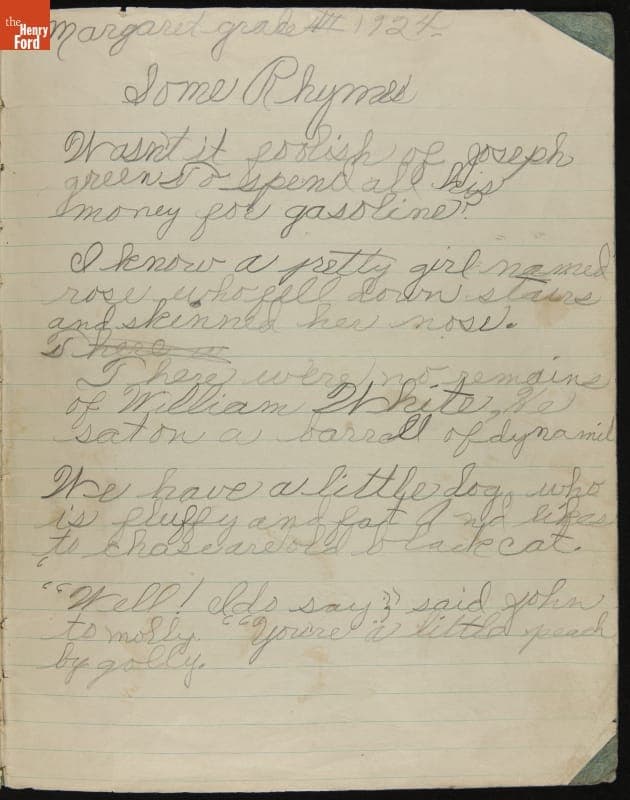 the
Henry
Ford
Margaret grade III 1924
Some Rhymes
Wasn't it foolish of Joseph
green to spent all his
money for gasoline?
I know a pretty girl named
rose who fell down stairs
and skinned her nose.
There w
There were no remains
of William White. He
sat on a barrell of dynamit
We have a little dog, who
is fluffy and fat And likes
to chase are old black cat.
"Well! I do say" said John
to molly. "You're a little peach
by golly.